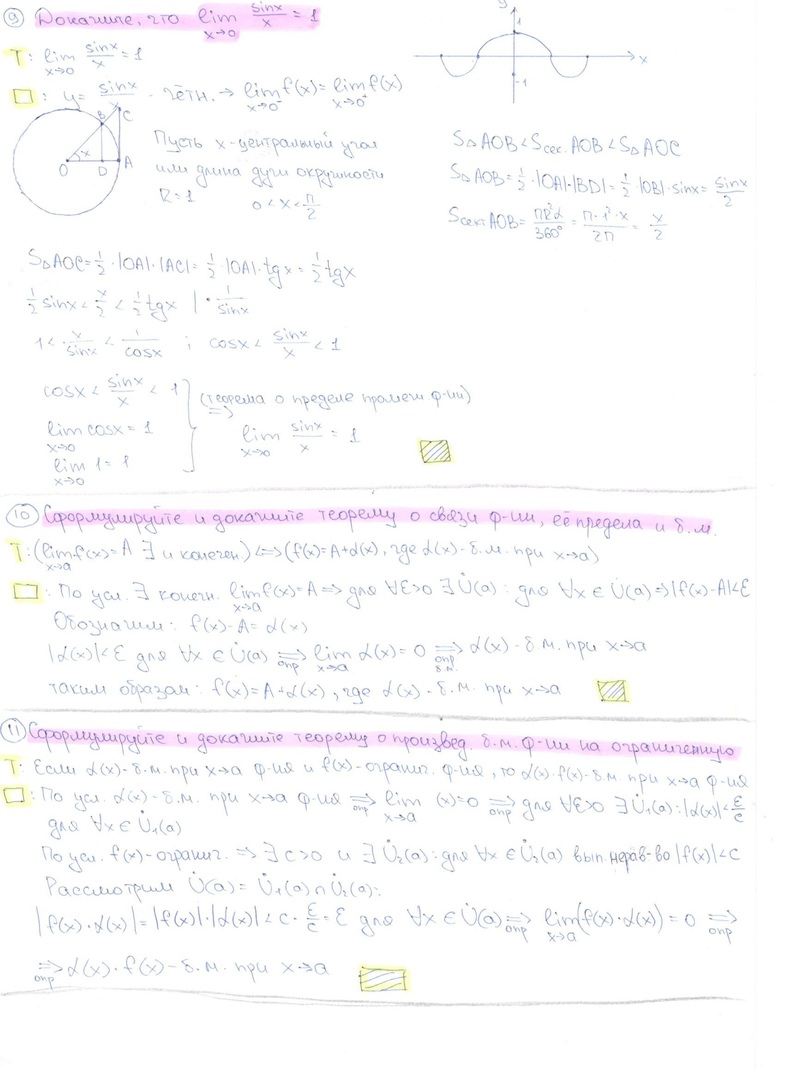 9 Докажите, что lim x→0 sinx/x = 1
T: lim x→0 sinx/x = 1
□: y = sinx/x - чётн. → lim x→0⁻ f(x) = lim x→0⁺ f(x)
y
1
x
-1
B C x O D A
Пусть x-центральный угол
или длина дуги окружности
R=1 0<x<П/2
S△AOB < Sсек.AOB < S△AOC
S△AOB = 1/2·|OA|·|BD| = 1/2·|OB|·sinx = sinx/2
Sсект.AOB = ПR²α/360° = П·1²·x/2П = x/2
S△AOC = 1/2·|OA|·|AC| = 1/2·|OA|·tgx = 1/2 tgx
1/2 sinx < x/2 < 1/2 tgx | · 1/sinx
1 < x/sinx < 1/cosx ; cosx < sinx/x < 1
cosx < sinx/x < 1
lim x→0 cosx = 1
lim x→0 1 = 1
(теорема о пределе промеж. ф-ии)
⇒ lim x→0 sinx/x = 1
10 Сформулируйте и докажите теорему о связи ф-ии, её предела и б.м.
T: (lim x→a f(x) = A ∃ и конечен) ⟺ (f(x) = A+α(x), где α(x) - б.м. при x→a)
□: По усл. ∃ конечн. lim x→a f(x) = A ⇒ для ∀ε>0 ∃ U̇(a): для ∀x ∈ U̇(a) ⇒ |f(x)-A|<ε
Обозначим: f(x)-A = α(x)
|α(x)|<ε для ∀x ∈ U̇(a) ⇒ опр lim x→a α(x) = 0 ⇒ опр б.м. α(x) - б.м. при x→a
таким образом: f(x) = A+α(x), где α(x) - б.м. при x→a
11 Сформулируйте и докажите теорему о произвед. б.м. ф-ии на ограниченную
T: Если α(x) - б.м. при x→a ф-ия и f(x) - огранич. ф-ия, то α(x)·f(x) - б.м. при x→a ф-ия
□: По усл. α(x) - б.м. при x→a ф-ия ⇒ опр lim x→a (x) = 0 ⇒ опр для ∀ε>0 ∃ U̇₁(a): |α(x)| < ε/c
для ∀x ∈ U̇₁(a)
По усл. f(x) - огранич. ⇒ ∃ c>0 и ∃ U̇₂(a): для ∀x ∈ U̇₂(a) вып. нерав-во |f(x)|<c
Рассмотрим U̇(a) = U̇₁(a) ∩ U̇₂(a):
|f(x)·α(x)| = |f(x)|·|α(x)| < c · ε/c = ε для ∀x ∈ U̇(a) ⇒ опр lim x→a (f(x)·α(x)) = 0 ⇒ опр
⇒ опр α(x)·f(x) - б.м. при x→a